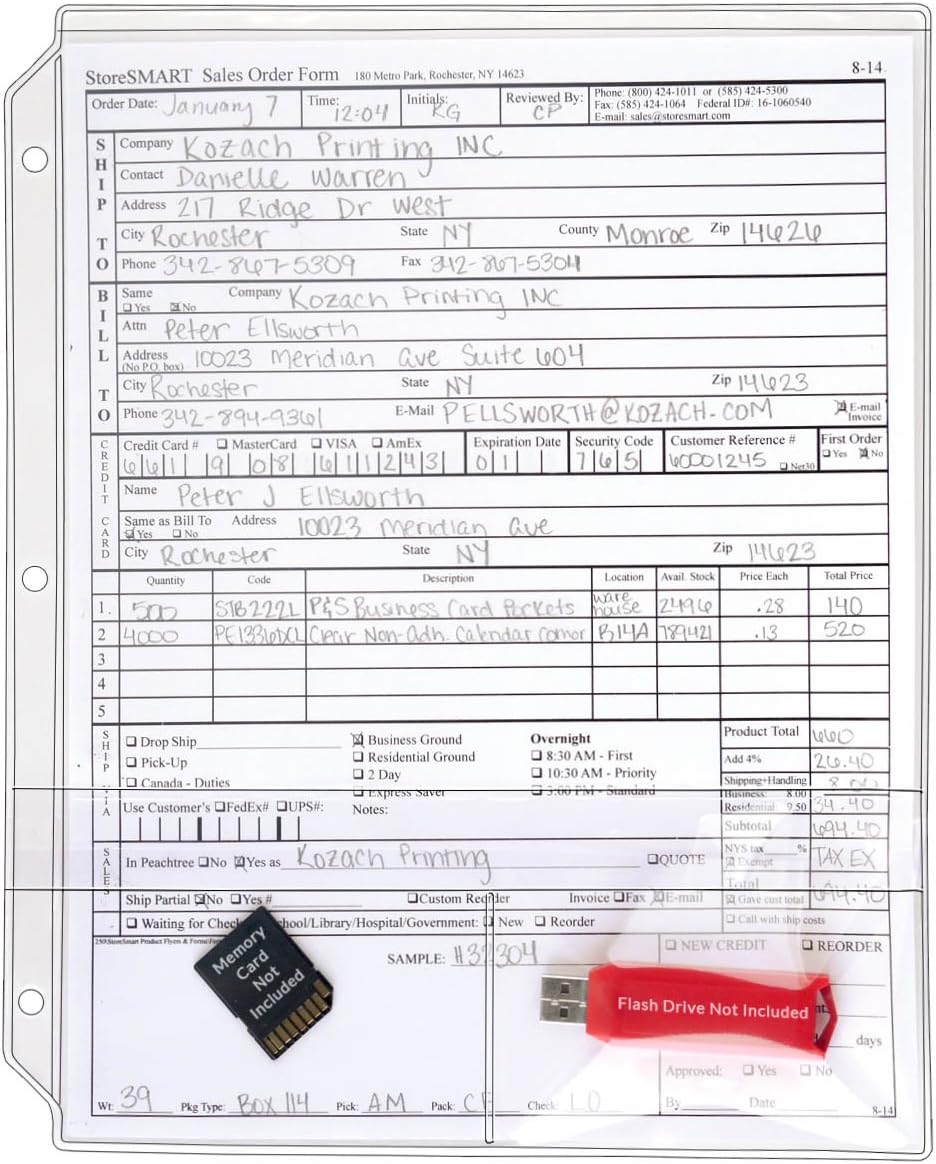 StoreSMART Sales Order Form 180 Metro Park, Rochester, NY 14623 8-14
Order Date: January 7 Time: 12:04 Initials: KG Reviewed By: CP
Phone: (800) 424-1011 or (585) 424-5300
Fax: (585) 424-1064 Federal ID#: 16-1060540
E-mail: sales@storesmart.com
SHIP TO
Company Kozach Printing INC
Contact Danielle Warren
Address 217 Ridge Dr West
City Rochester State NY County Monroe Zip 14626
Phone 342-867-5309 Fax 342-867-5304
BILL TO
Same Yes No Company Kozach Printing INC
Attn Peter Ellsworth
Address (No P.O. box) 10023 Meridian Ave Suite 604
City Rochester State NY Zip 14623
Phone 342-894-9361 E-Mail PELLSWORTH@KOZACH.COM E-mail Invoice
CREDIT CARD
Credit Card # MasterCard VISA AmEx Expiration Date Security Code Customer Reference # First Order
6611 9 08 611243 01 765 60001245 Net30 Yes No
Name Peter J Ellsworth
Same as Bill To Yes No Address 10023 Meridian Ave
City Rochester State NY Zip 14623
Quantity Code Description Location Avail. Stock Price Each Total Price
1. 500 STB222L P&S Business Card Pockets warehouse 2496 .28 140
2 4000 PE1336DCL Clear Non-Adh. Calendar Corner B14A 789421 .13 520
3
4
5
SHIP VIA
Drop Ship Business Ground Overnight Product Total 660
Pick-Up Residential Ground 8:30 AM - First Add 4% 26.40
Canada - Duties 2 Day 10:30 AM - Priority Shipping+Handling 8.00
Express Saver 3:00 PM - Standard Business: 8.00
Use Customer's FedEx# UPS#: Notes: Residential 9.50 34.40
Subtotal 694.40
SALES
In Peachtree No Yes as Kozach Printing QUOTE NYS tax % Exempt TAX EX
Total 694.40
Ship Partial No Yes # Custom Reorder Invoice Fax E-mail Gave cust total
Waiting for Check School/Library/Hospital/Government: New Reorder Call with ship costs
SAMPLE: #32304 NEW CREDIT REORDER
Memory
Card
Not
Included
Flash Drive Not Included
days
Approved: Yes No
Wt: 39 Pkg Type: BOX 114 Pick: AM Pack: Check: LO By Date 8-14